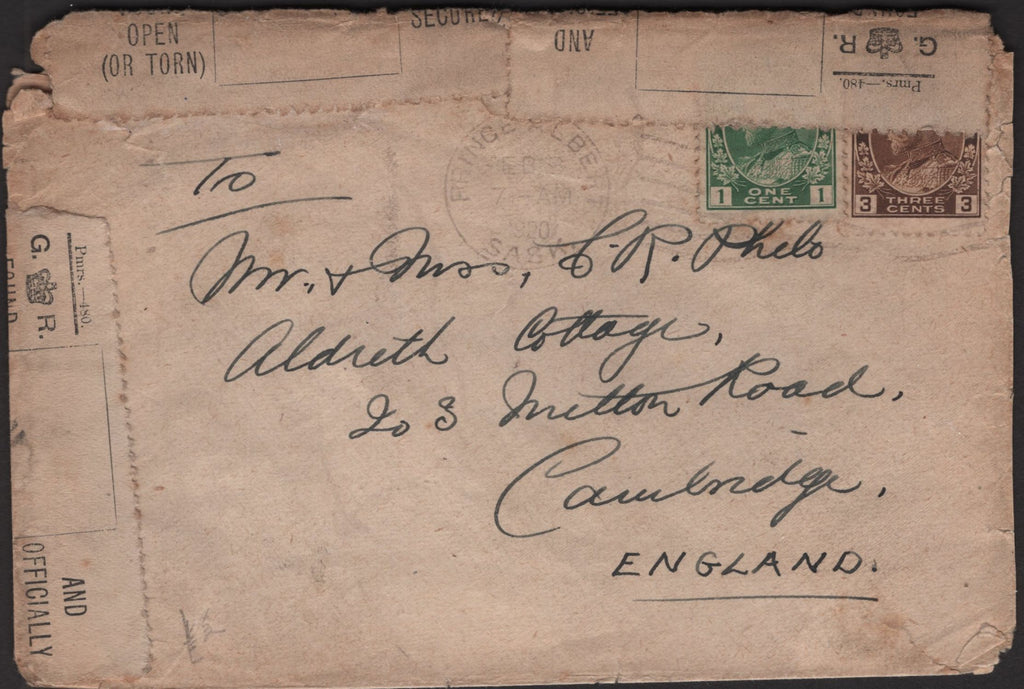 OPEN
(OR TORN)
SECURED
AND
G. R.
Pmrs.—480.
PRINCE ALBERT
AM
SASK
1 ONE CENT 1
3 THREE CENTS 3
To
Mr. & Mrss, R. Phelo
Aldreth Cottage,
203 Road,
Cambridge,
ENGLAND.
Pmrs.—480.
G. R.
FOUND
AND
OFFICIALLY